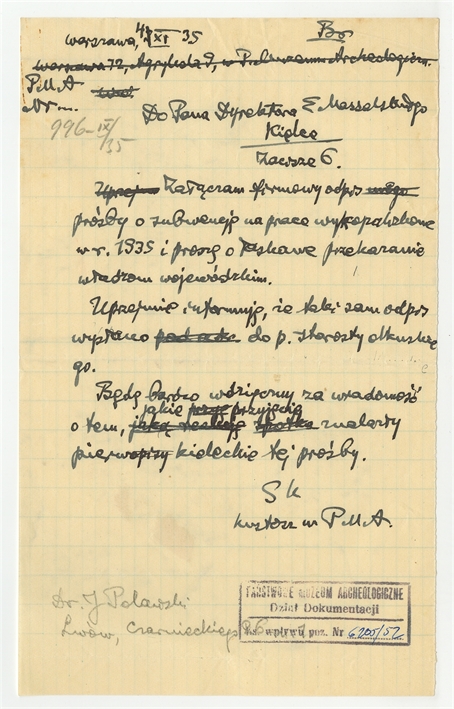 Warszawa, 4/XI 35
Br
Warszawa 72, Agrykola 9, w P. Muzeum Archeologiczn.
P.M.A
Nr —
996-IX/35
Do Pana Dyrektora E. Massalskiego
Kielce
Zacisze 6.
Załączam firmowy odpis mego
prośby o subwencję na prace wykopaliskowe
w r. 1935 i proszę o łaskawe przekazanie
władzom wojewódzkim.
Uprzejmie informuję, że taki sam odpis
wysłano pod adr. do p. starosty olkuskie
go.
Będę bardzo wdzięczny za wiadomość
jakie przyjęcie
o tem, jaką reakcję spotka znalazły
pierwopisy kieleckie tej prośby.
Sk
kustosz w P.M.A.
Dr. J Polawski
Lwów, Czarnieckiego
PAŃSTWOWE MUZEUM ARCHEOLOGICZNE
Dział Dokumentacji
Ks. wpływu poz. Nr 6205/52